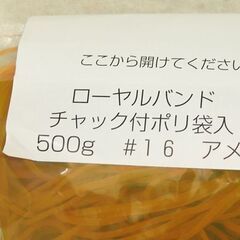 ここから開けてください
ローヤルバンド
チャック付ポリ袋入
500g #16 アメ